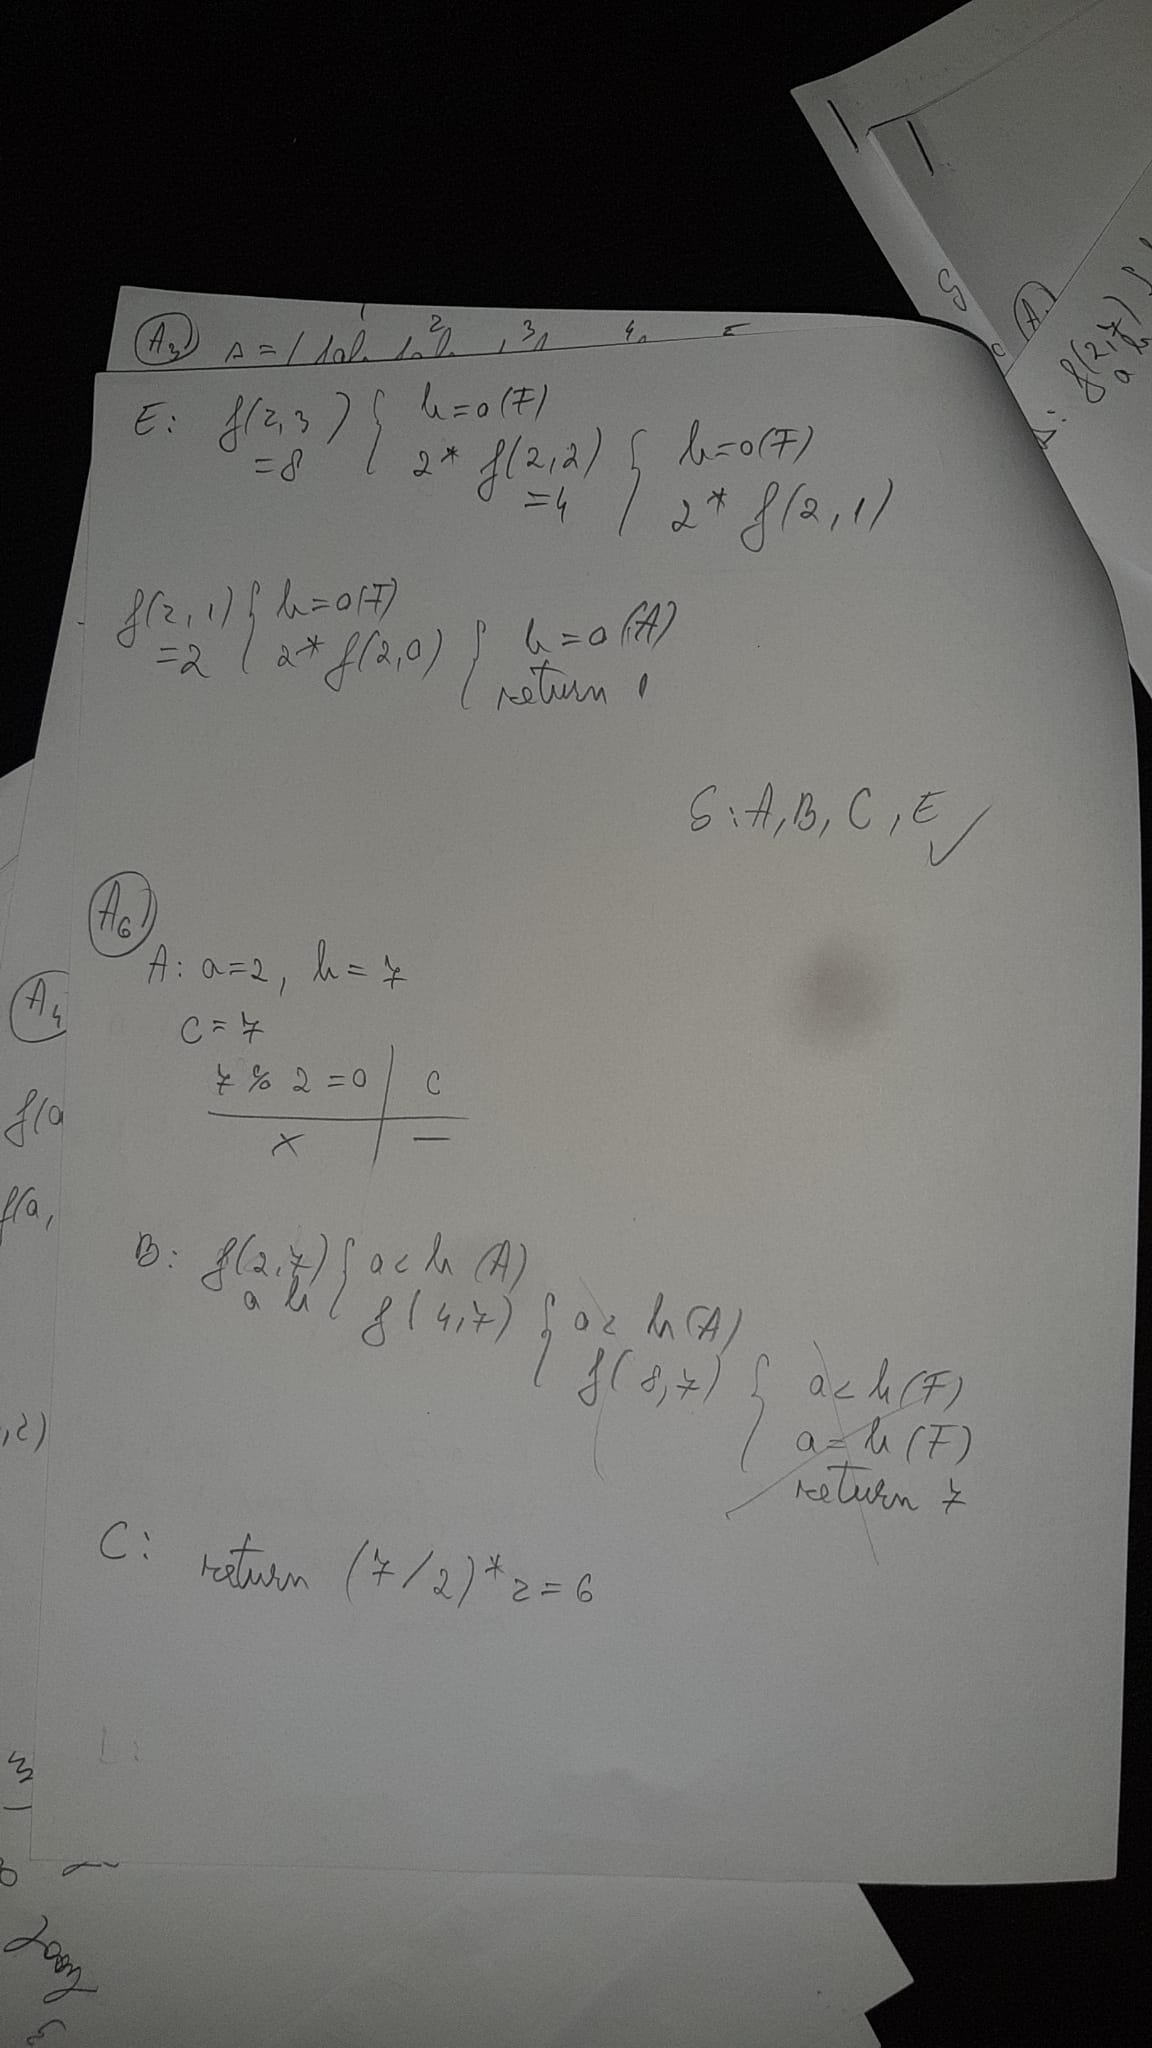 A3) s = 1
2 3 4 5
E: f(2,3) { b=0(F)
=8 2* f(2,2) { b=0(F)
=4 2* f(2,1)
f(2,1) { b=0(F)
=2 2* f(2,0) { b=0(A)
return 1
S: A, B, C, E ✓
A6)
A: a=2, b=7
c=7
7 % 2 =0 | c
x | —
B: f(2,7) { a<b (A)
a b f(4,7) { a< b(A)
f(8,7) { a<b(F)
a=b(F)
return 7
C: return (7/2)*2=6
A4
f(a
f(a,
,2)
f(2,7)
a b